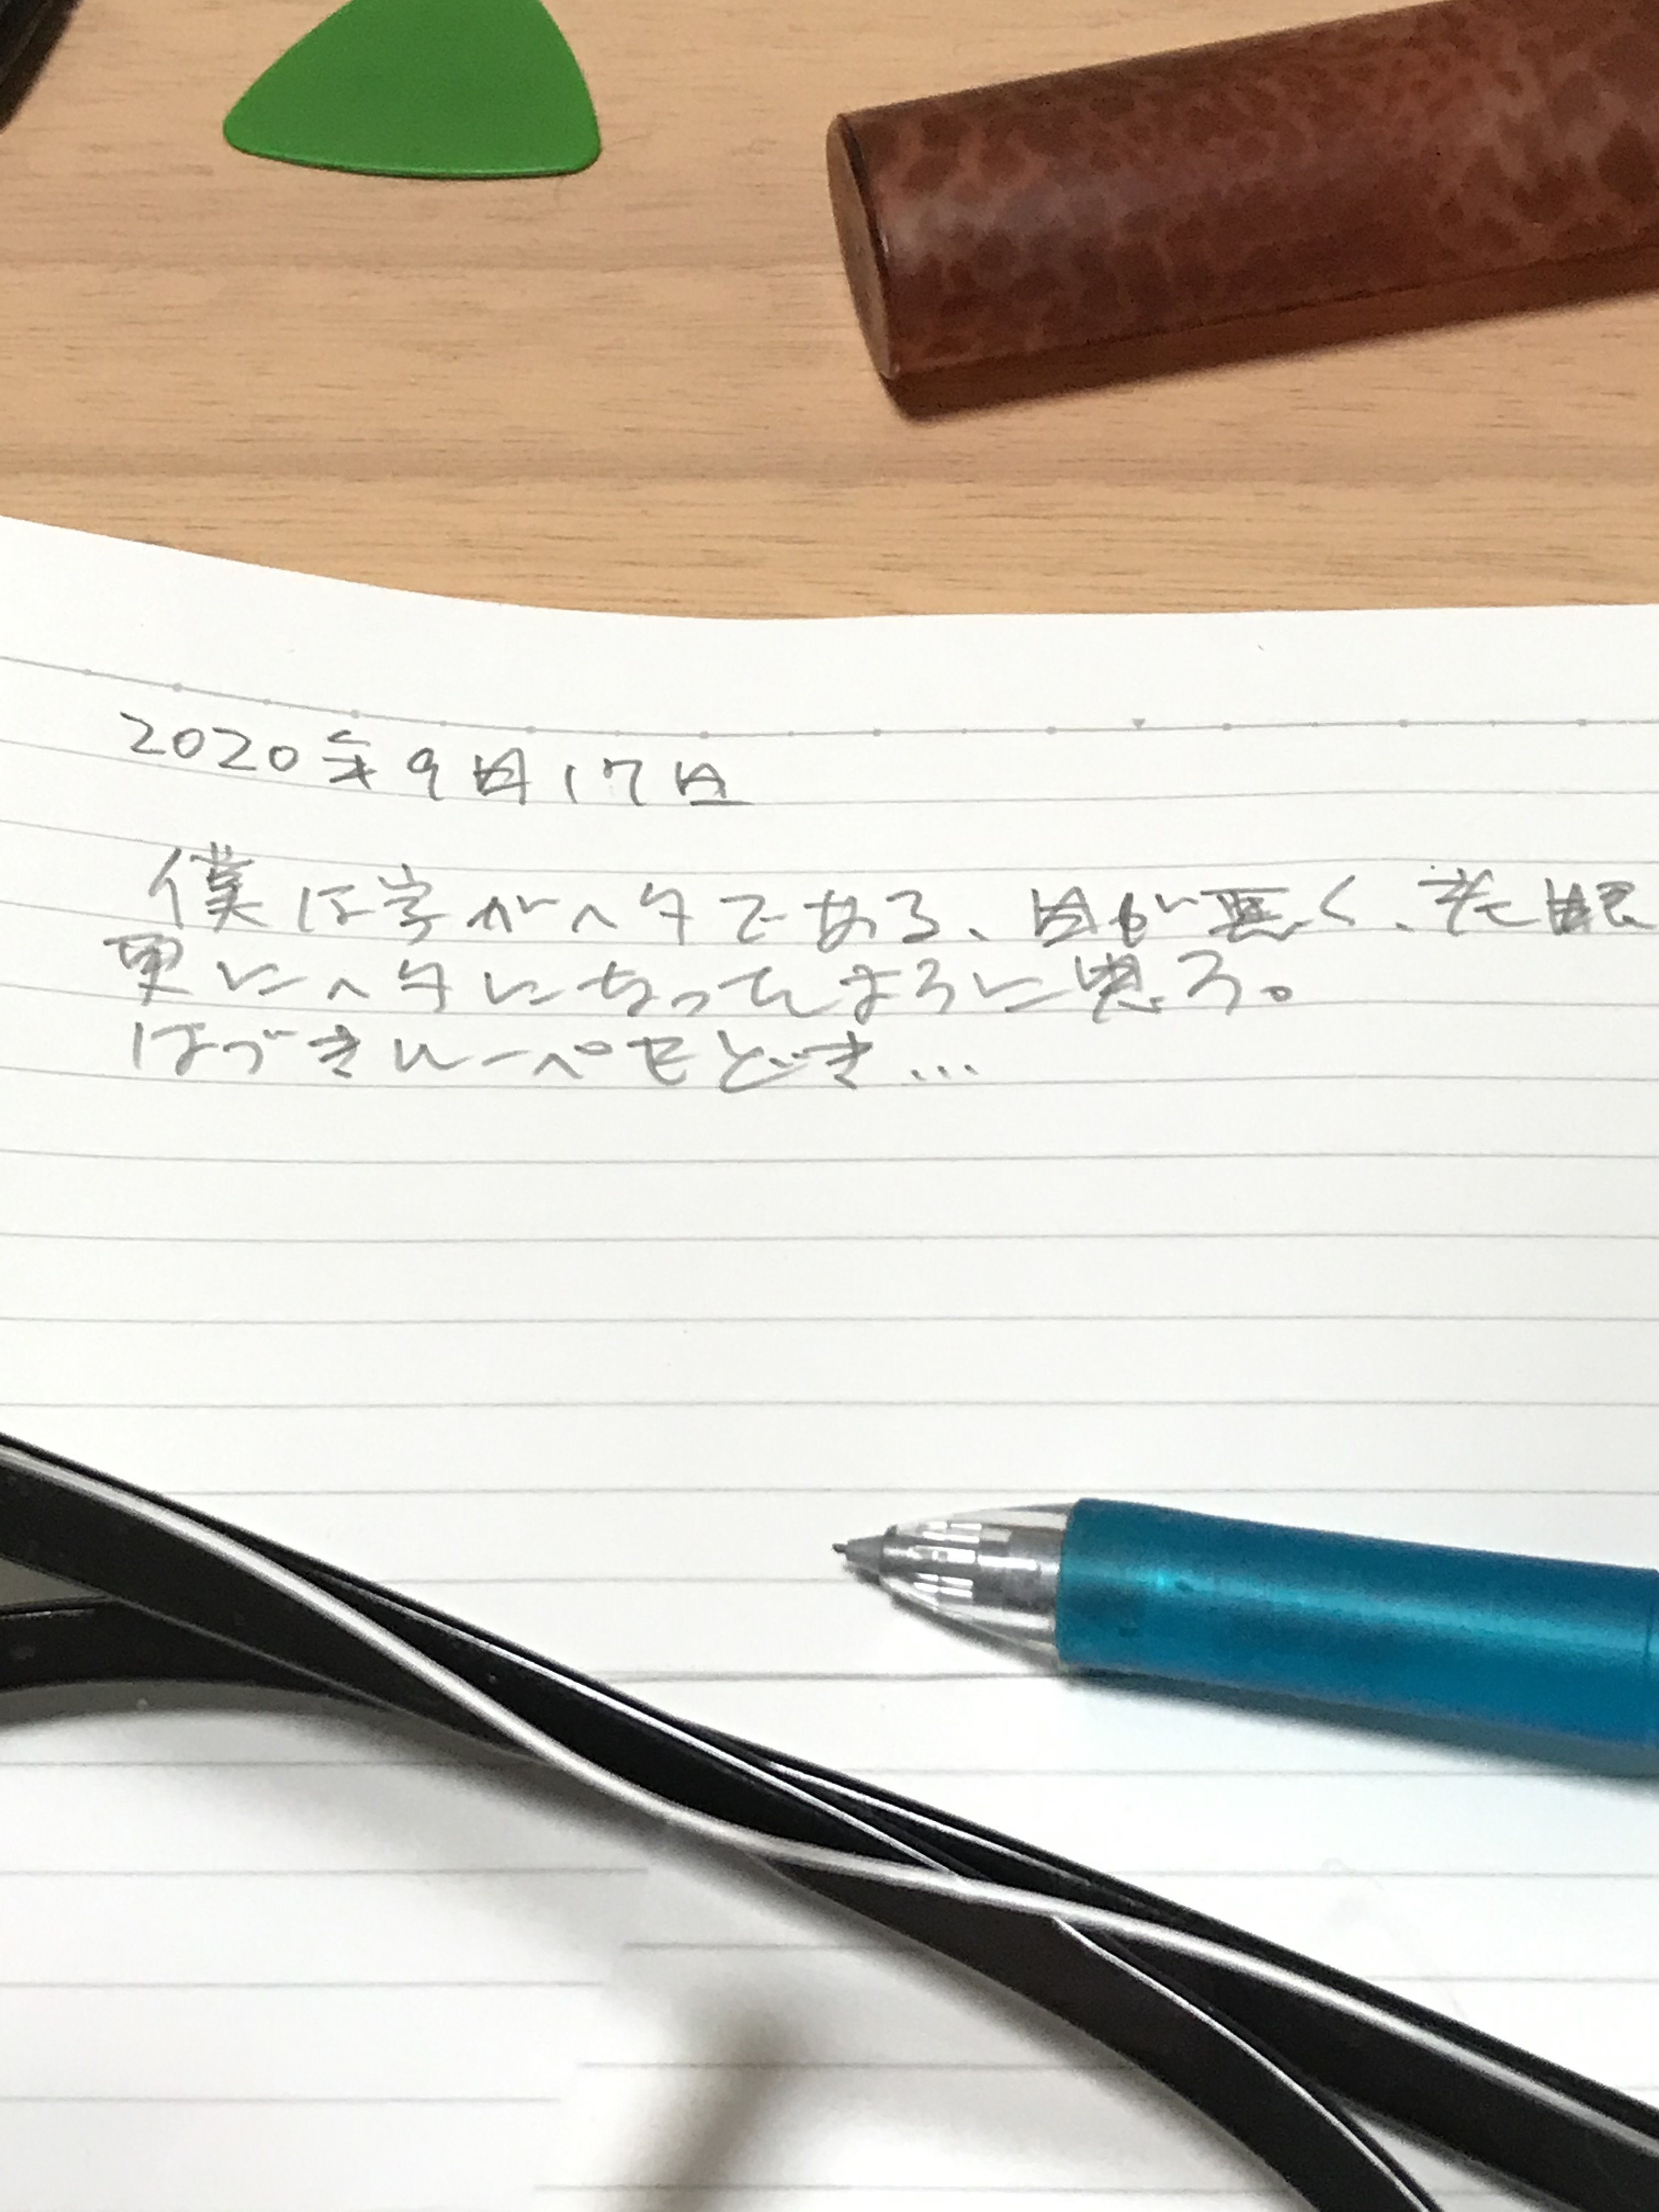 2020年9月17日
僕は字がヘタである、目が悪く、老眼
更にヘタになってるように思う。
はづきルーペもどき…